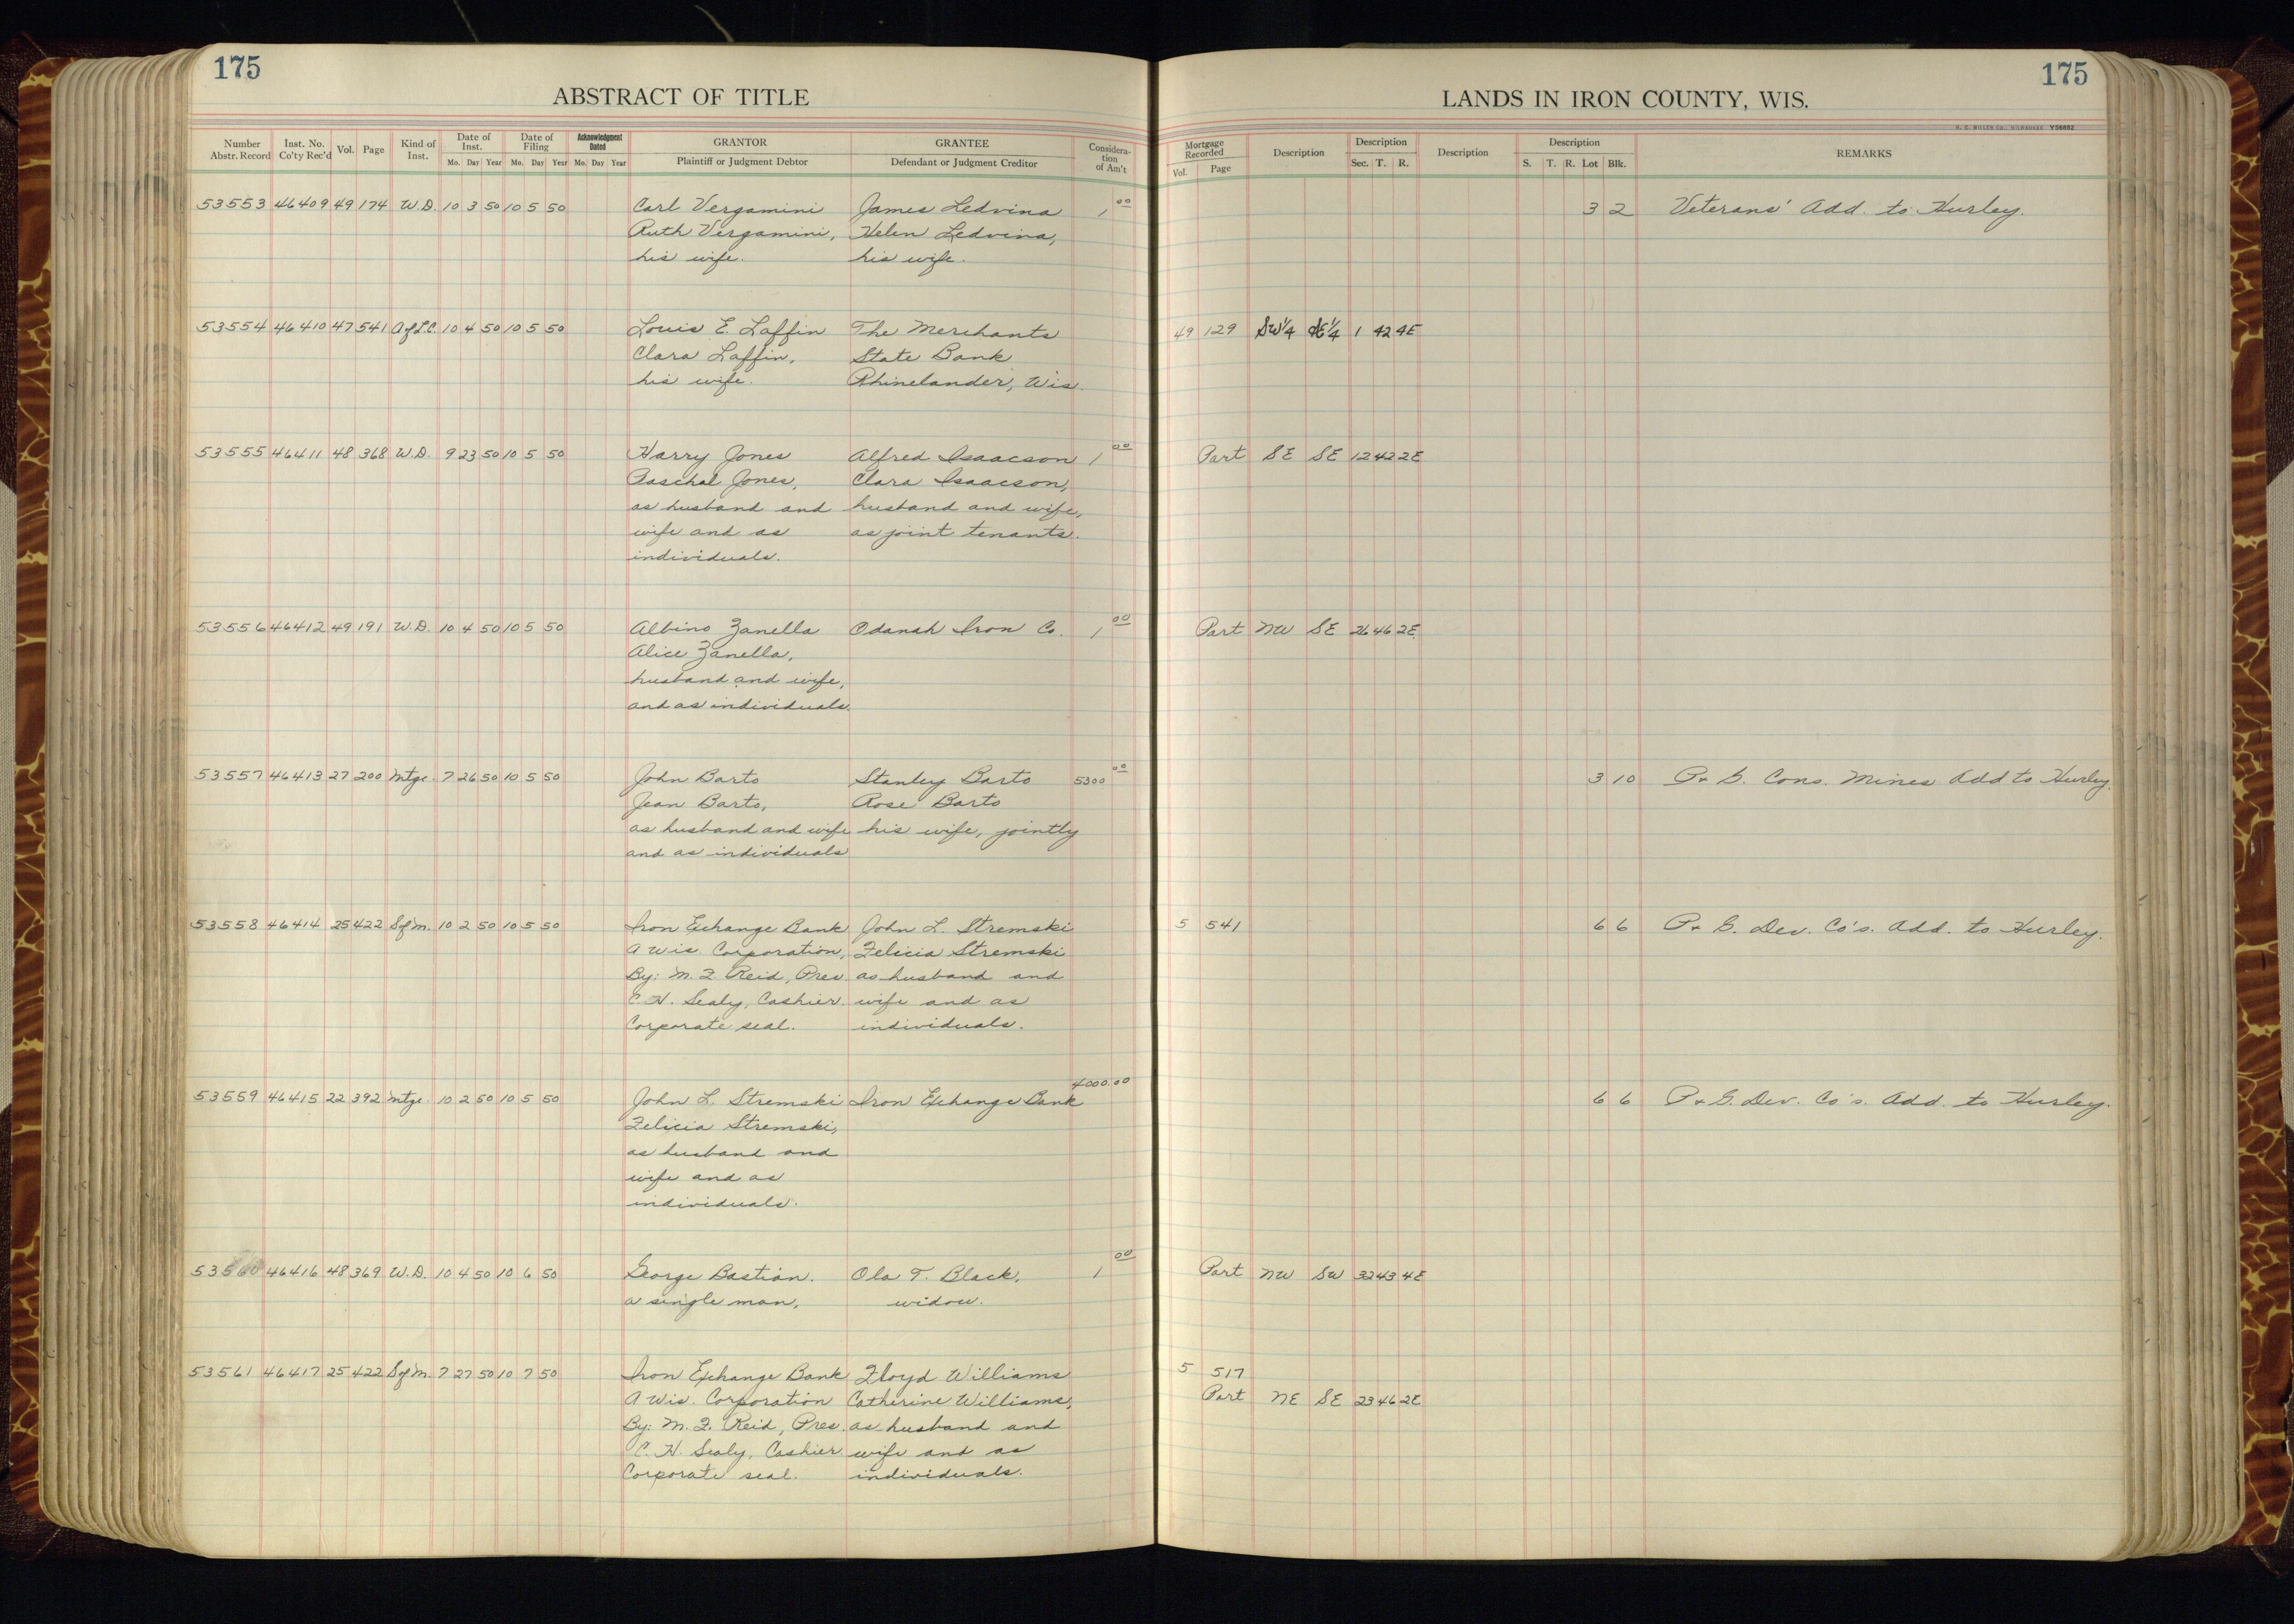 175
175
ABSTRACT OF TITLE
LANDS IN IRON COUNTY, WIS.
H. C. MILLER CO., MILWAUKEE Y56682
Number Abstr. Record Inst. No. Co'ty Rec'd Vol. Page Kind of Inst. Date of Inst. Mo. Day Year Date of Filing Mo. Day Year Acknowledgment Dated Mo. Day Year GRANTOR Plaintiff or Judgment Debtor GRANTEE Defendant or Judgment Creditor Considera-tion of Am't
Mortgage Recorded Vol. Page Description Description Sec. T. R. Description Description S. T. R. Lot Blk. REMARKS
53553 46409 49 174 W.D. 10 3 50 10 5 50 Carl Vergamini James Ledvina 1 00 3 2 Veterans' Add. to Hurley.
Ruth Vergamini, Helen Ledvina,
his wife. his wife.
53554 46410 47 541 A of L.C. 10 4 50 10 5 50 Louis E. Laffin The Merchants 49 129 SW1/4 SE1/4 1 42 4E
Clara Laffin, State Bank
his wife. Rhinelander, Wis.
53555 46411 48 368 W.D. 9 23 50 10 5 50 Harry Jones Alfred Isaacson 1 00 Part SE SE 12 42 2E
Paschal Jones, Clara Isaacson,
as husband and husband and wife,
wife and as as joint tenants.
individuals.
53556 46412 49 191 W.D. 10 4 50 10 5 50 Albino Zanella Odanah Iron Co. 1 00 Part NW SE 26 46 2E
Alice Zanella,
husband and wife,
and as individuals.
53557 46413 27 200 Mtge. 7 26 50 10 5 50 John Barto Stanley Barto 5300 00 3 10 P. & G. Cons. Mines Add to Hurley.
Jean Barto, Rose Barto
as husband and wife his wife, jointly
and as individuals
53558 46414 25 422 S of M. 10 2 50 10 5 50 Iron Exchange Bank John L. Stremski 5 541 6 6 P. & G. Dev. Co's. Add. to Hurley.
A Wis. Corporation, Felicia Stremski
By: M. F. Reid, Pres. as husband and
C. H. Sealy, Cashier. wife and as
Corporate seal. individuals.
53559 46415 22 392 Mtge. 10 2 50 10 5 50 John L. Stremski Iron Exchange Bank 4000.00 6 6 P. & G. Dev. Co's. Add. to Hurley.
Felicia Stremski,
as husband and
wife and as
individuals.
53560 46416 48 369 W.D. 10 4 50 10 6 50 George Bastian. Ola T. Black, 1 00 Part NW SW 32 43 4E
a single man, widow.
53561 46417 25 422 S of M. 7 27 50 10 7 50 Iron Exchange Bank Floyd Williams 5 517
A Wis. Corporation Catherine Williams, Part NE SE 23 46 2E
By: M. F. Reid, Pres. as husband and
C. H. Sealy, Cashier wife and as
Corporate seal. individuals.